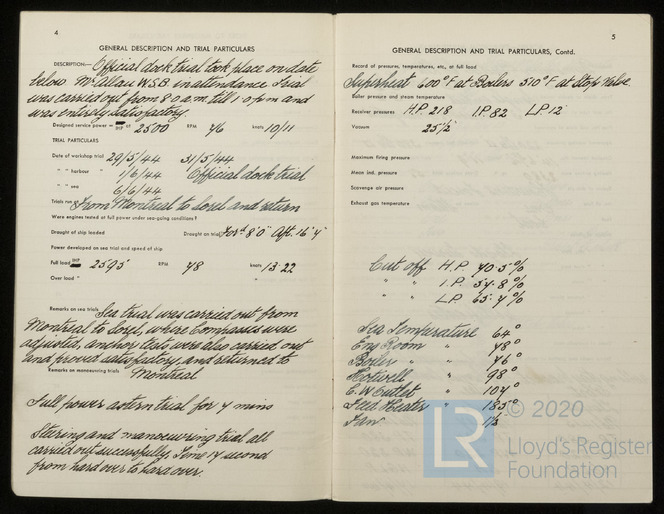 4
GENERAL DESCRIPTION AND TRIAL PARTICULARS
DESCRIPTION:— Official dock trial took place on date
below Mr Allan W.S.B. in attendance. Trial
was carried out from 8 0 a.m. till 1 0 p.m and
was entirely satisfactory.
Designed service power = IHP at 2500 RPM 76 knots 10/11
TRIAL PARTICULARS
Date of workshop trial 29/5/44 31/5/44
" " harbour " 1/6/44 Official dock trial
" " sea 6/6/44
Trials run From Montreal to Sorel and return
Were engines tested at full power under sea-going conditions?
Draught of ship loaded Draught on trial For'd 8'0" Aft. 16'4"
Power developed on sea trial and speed of ship
Full load IHP 2595 RPM 78 knots 13.22
Over load " "
Remarks on sea trials Sea trial was carried out from
Montreal to Sorel, where Compasses were
adjusted, anchor tests were also carried out
and proved satisfactory, and returned to
Remarks on manœuvring trials Montreal
Full power astern trial for 7 mins
Steering and manoeuvring trial all
carried out successfully. Time 17 second
from hard over to hard over.
5
GENERAL DESCRIPTION AND TRIAL PARTICULARS, Contd.
Record of pressures, temperatures, etc., at full load
Superheat 600°F at Boilers 570°F at Stop Valve.
Boiler pressure and steam temperature
Receiver pressures H.P. 218 I.P. 82 L.P. 12
Vacuum 25½"
Maximum firing pressure
Mean ind. pressure
Scavenge air pressure
Exhaust gas temperature
Cut off H.P. 70.5%
" " I.P. 57.8%
" " L.P. 65.7%
Sea Temperature 64°
Eng Room " 78°
Boiler " " 76°
Hotwell " 98°
C.W Outlet " 104°
Feed Heater " 185°
Fan
LR © 2020
Lloyd's Register
Foundation